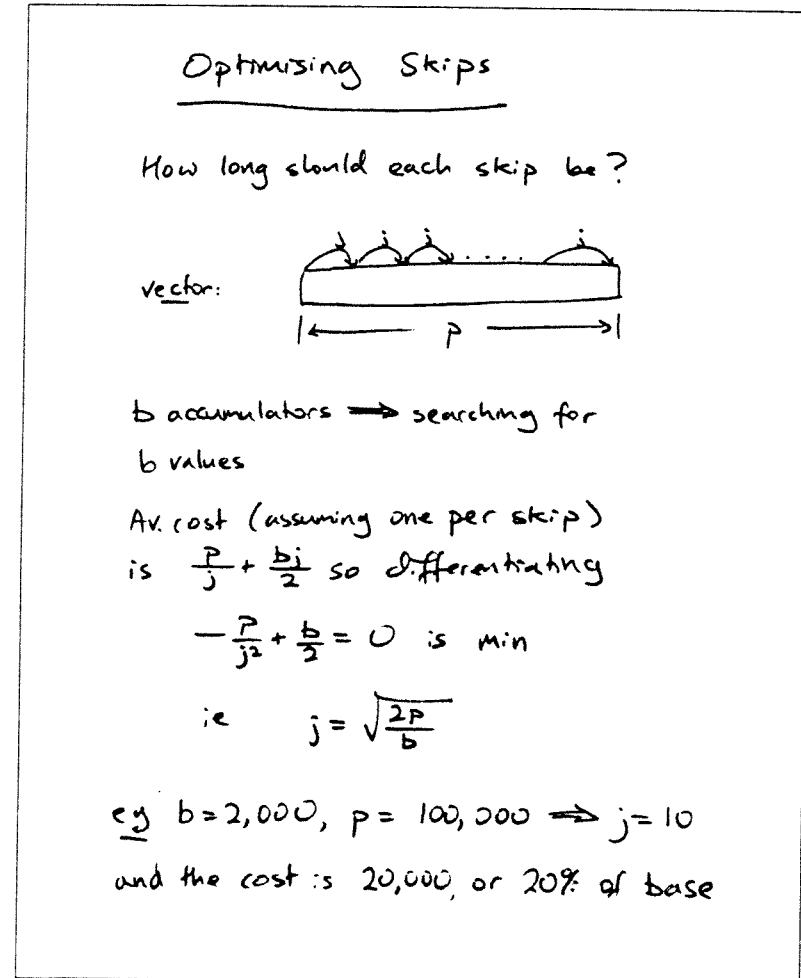 Optimising Skips
How long should each skip be?
j j j ..... j
vector:
p
b accumulators ⇒ searching for
b values
Av. cost (assuming one per skip)
is p/j + bj/2 so differentiating
-p/j² + b/2 = 0 is min
ie j = √(2p/b)
eg b = 2,000, p = 100,000 ⇒ j = 10
and the cost is 20,000, or 20% of base